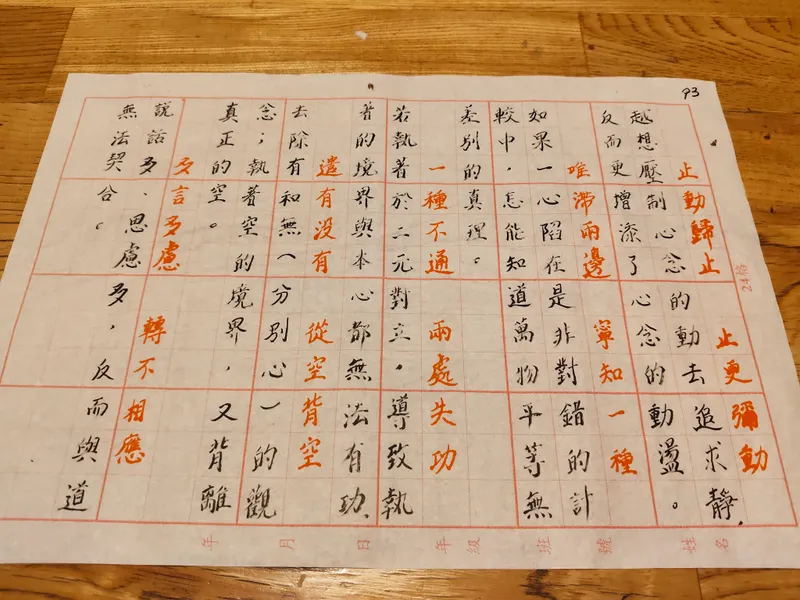 P3
止動歸止 止更彌動
越想壓制心念的動去追求靜，
反而更增添了心念的動盪。
唯滯兩邊 寧知一種
如果一心陷在是非對錯的計
較中，怎能知道萬物平等無
差別的真理。
一種不通 兩處失功
若執著於二元對立，導致執
著的境界與本心都無法有功，
遣有沒有 從空背空
去除有和無（分別心）的觀
念；執著空的境界，又背離
真正的空。
多言多慮 轉不相應
說話多、思慮多，反而與道
無法契合。
24格
姓名 號 班 年級 日 月 年